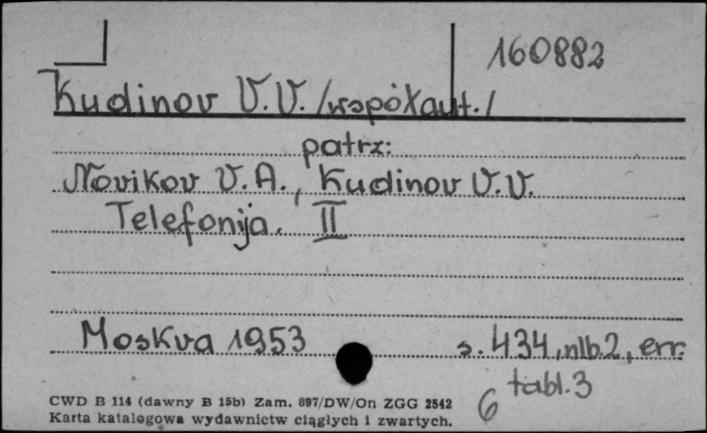 160882
Kudinov V.V. /współaut./
patrz:
Novikov V.A., Kudinov V.V.
Telefonija. II
Moskva 1953 s. 434, nlb. 2, err.
tabl. 3
6
CWD B 114 (dawny B 15b) Zam. 897/DW/On ZGG 2542
Karta katalogowa wydawnictw ciągłych i zwartych.